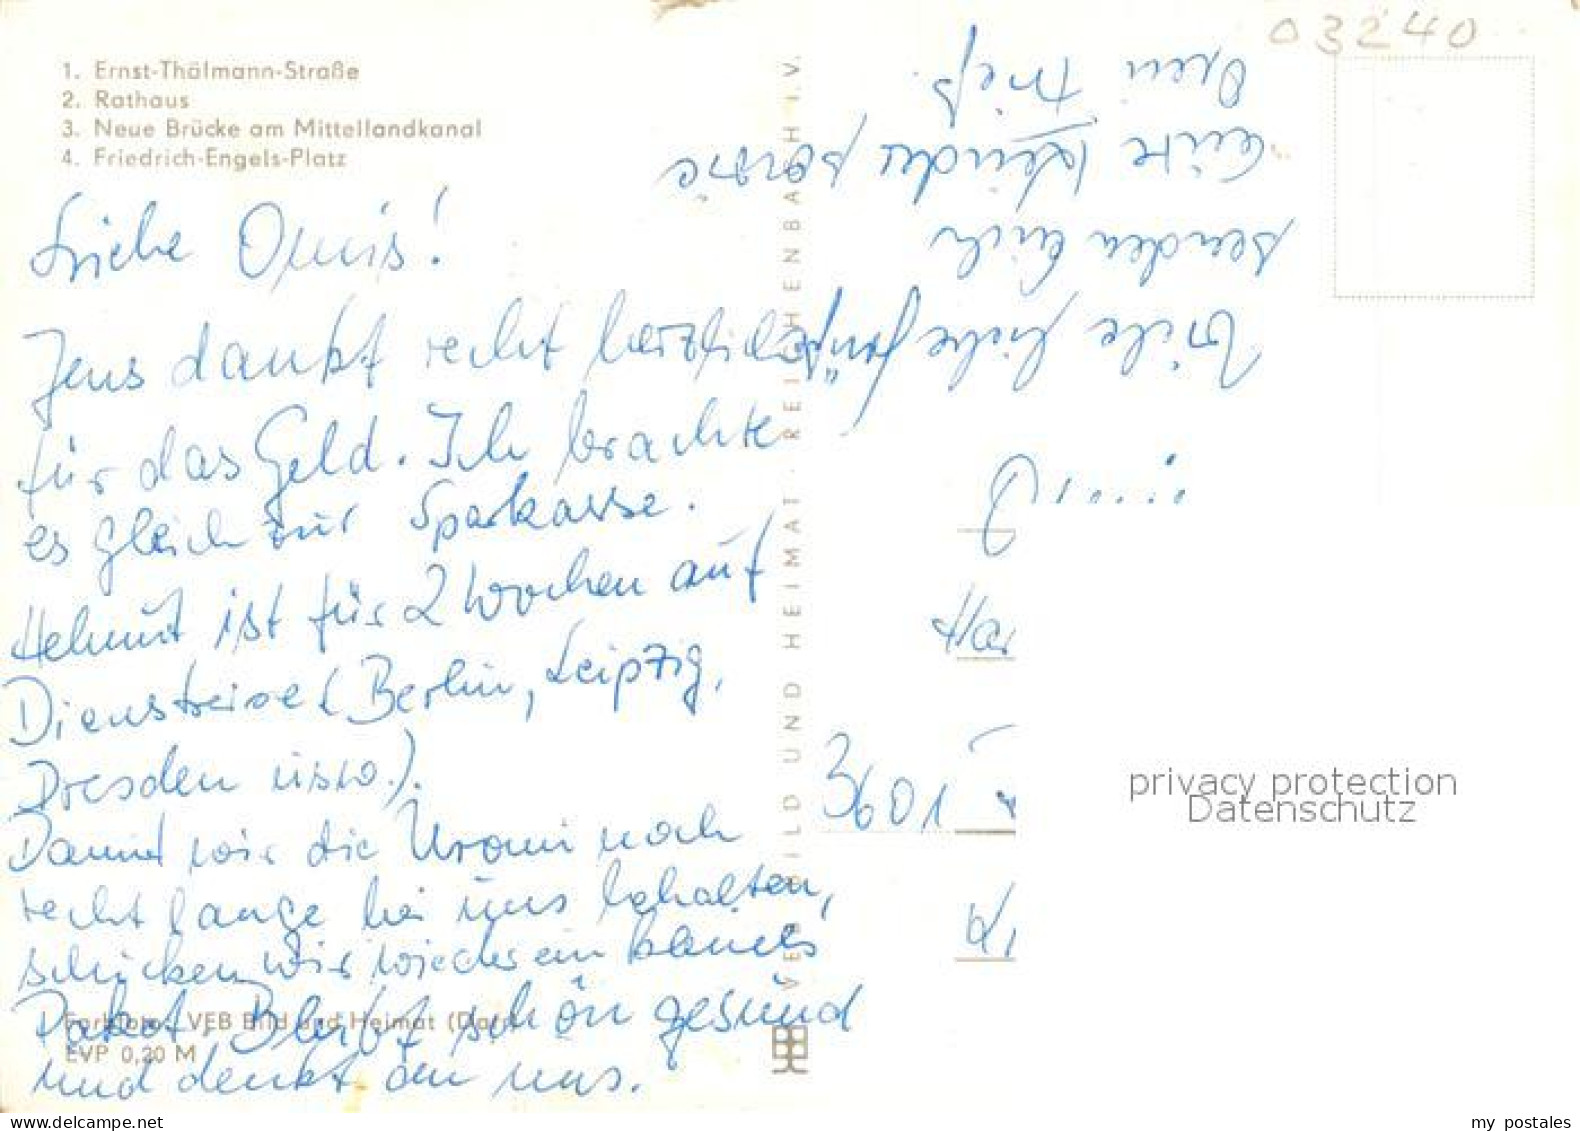 1. Ernst-Thälmann-Straße
2. Rathaus
3. Neue Brücke am Mittellandkanal
4. Friedrich-Engels-Platz
03240
Liebe Omis!
Jens dankt recht herzlich
für das Geld. Ich brachte
es gleich zur Sparkasse.
Helmut ist für 2 Wochen auf
Dienstreise (Berlin, Leipzig,
Dresden usw.).
Damit wir die Uromi noch
recht lange bei uns behalten,
schicken wir wieder ein kleines
Paket. Bleibt schön gesund
und denkt an uns.
Viele liebe Grüße
senden Euch
Eure Kinder sowie
Jens
VEB BILD UND HEIMAT REICHENBACH I.V.
3601
Farbfoto: VEB Bild und Heimat
EVP 0,20 M
privacy protection
Datenschutz
my postales